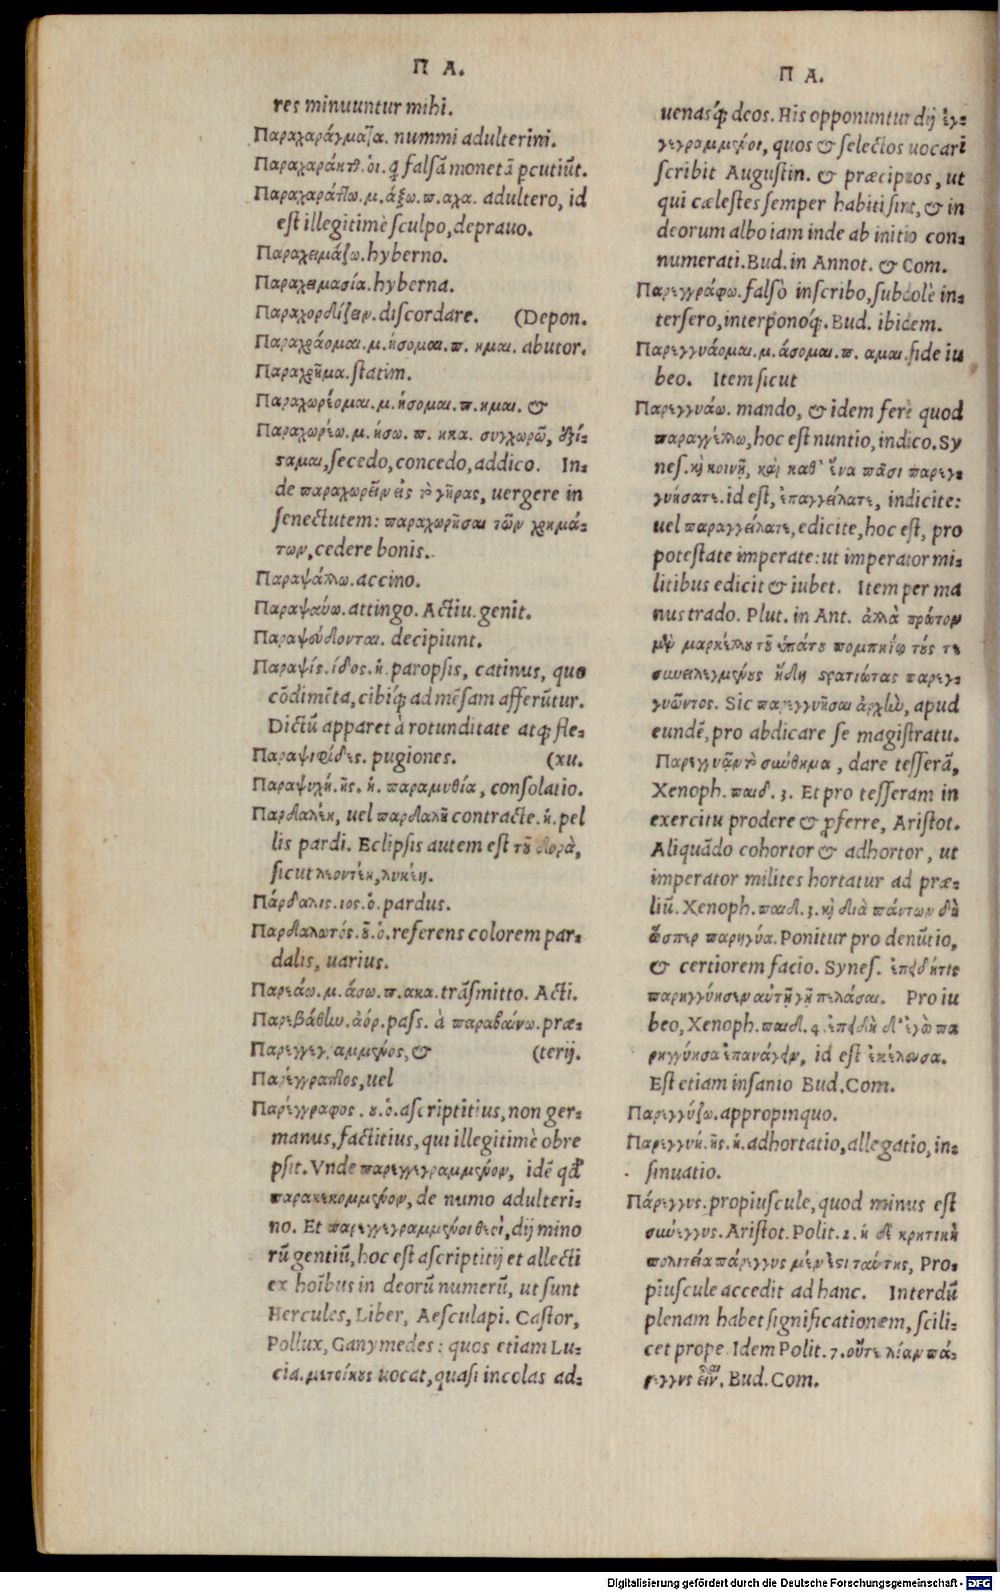 Π Α.
res minuuntur mihi.
Παραχαράγματα. nummi adulterini.
Παραχαράκτ. οἱ. q̃ falsã monetã ꝑcutiũt.
Παραχαράτ]ω. μ. άξω. π. αχα. adultero, id
est illegitimè sculpo, deprauo.
Παραχειμάζω. hyberno.
Παραχειμασία. hyberna.
Παραχορδίζειν. discordare. (Depon.
Παραχράομαι. μ. ήσομαι. π. ημαι. abutor.
Παραχρῆμα. statim.
Παραχωρέομαι. μ. ήσομαι. π. ημαι. &
Παραχωρέω. μ. ήσω. π. ηκα. συγχωρῶ, ἐξί-
σαμαι, secedo, concedo, addico. In-
de παραχωρεῖν εἰς τὸ γῆρας, uergere in
senectutem: παραχωρῆσαι τῶν χρημά-
των, cedere bonis.
Παραψάλλω. accino.
Παραψαύω. attingo. Actiu. genit.
Παραψεύδονται. decipiunt.
Παραψίς. ίδος. ἡ. paropsis, catinus, quo
cõdimẽta, cibiq́; ad mẽsam afferũtur.
Dictũ apparet à rotunditate atq; fle-
Παραψιφίδες. pugiones. (xu.
Παραψυχή. ῆς. ἡ. παραμυθία, consolatio.
Παρδαλέη, uel παρδαλῆ contracte. ἡ. pel
lis pardi. Eclipsis autem est τοῦ δορὰ,
sicut λεοντέη, λυκέη.
Πάρδαλις. ιος. ὁ. pardus.
Παρδαλωτός. οῦ. ὁ. referens colorem par-
dalis, uarius.
Παρεάω. μ. άσω. π. ακα. trãsmitto. Acti.
Παρεβάθην. ἀόρ. pass. à παραβαίνω. præ-
Παρεγγεγραμμένος, & (terij.
Παρέγγραπτος, uel
Παρέγγραφος. ου. ὁ. ascriptitius, non ger-
manus, factitius, qui illegitimè obre
psit. Vnde παρεγγεγραμμένον, idẽ qđ
παρακεκομμένον, de numo adulteri-
no. Et παρεγγεγραμμένοι θεοὶ, dij mino
rũ gentiũ, hoc est ascriptitij et allecti
ex hoĩbus in deorũ numerũ, ut sunt
Hercules, Liber, Aesculapi. Castor,
Pollux, Ganymedes: quos etiam Lu-
cia. μετοίκους uocat, quasi incolas ad-
Π Α.
uenasq́; deos. His opponuntur dij ἐγ-
γεγραμμένοι, quos & selectos uocari
scribit Augustin. & præcipuos, ut
qui cælestes semper habiti sint, & in
deorum albo iam inde ab initio con-
numerati. Bud. in Annot. & Com.
Παρεγγράφω. falsò inscribo, subdolè in-
tersero, interponoq́;. Bud. ibidem.
Παρεγγυάομαι. μ. άσομαι. π. αμαι. fide iu
beo. Item sicut
Παρεγγυάω. mando, & idem ferè quod
παραγγέλλω, hoc est nuntio, indico. Sy
nes. κὴ κοινῇ, καὶ καθ' ἕνα πᾶσι παρεγ-
γυήσατε. id est, ἐπαγγείλατε, indicite:
uel παραγγείλατε, edicite, hoc est, pro
potestate imperate: ut imperator mi-
litibus edicit & iubet. Item per ma
nus trado. Plut. in Ant. ἀλλὰ πρῶτον
μὲν μαρκέλλου τοῦ ὑπάτου πομπηίῳ τούς τε
συνειλεγμένους ἤδη στρατιώτας παρεγ-
γυῶντος. Sic παρεγγυῆσαι ἀρχὴν, apud
eundẽ, pro abdicare se magistratu.
Παρεγγυᾷν τὸ σύνθημα, dare tesserã,
Xenoph. παιδ. 3. Et pro tesseram in
exercitu prodere & ꝓferre, Aristot.
Aliquãdo cohortor & adhortor, ut
imperator milites hortatur ad præ-
liũ. Xenoph. παιδ. 3. κὴ διὰ πάντων δὴ
ὥσπερ παρηγύα. Ponitur pro denũtio,
& certiorem facio. Synes. ἐπειδήτις
παρηγγύησεν αὐτῇ γῇ πελάσαι. Pro iu
beo, Xenoph. παιδ. 4. ἐπειδὴ δ' ἐγὼ πα
ρηγγύησα ἐπανάγειν, id est ἐκέλευσα.
Est etiam insanio Bud. Com.
Παρεγγύζω. appropinquo.
Παρεγγυή. ῆς. ἡ. adhortatio, allegatio, in-
sinuatio.
Πάρεγγυς. propiuscule, quod minus est
σύνεγγυς. Aristot. Polit. 2. ἡ δὲ κρητικὴ
πολιτεία πάρεγγυς μέν ἐστι ταύτης, Pro-
piuscule accedit ad hanc. Interdũ
plenam habet significationem, scili-
cet prope. Idem Polit. 7. οὔτε λίαν πά-
ρεγγυς εἶν. Bud. Com.
Digitalisierung gefördert durch die Deutsche Forschungsgemeinschaft - DFG